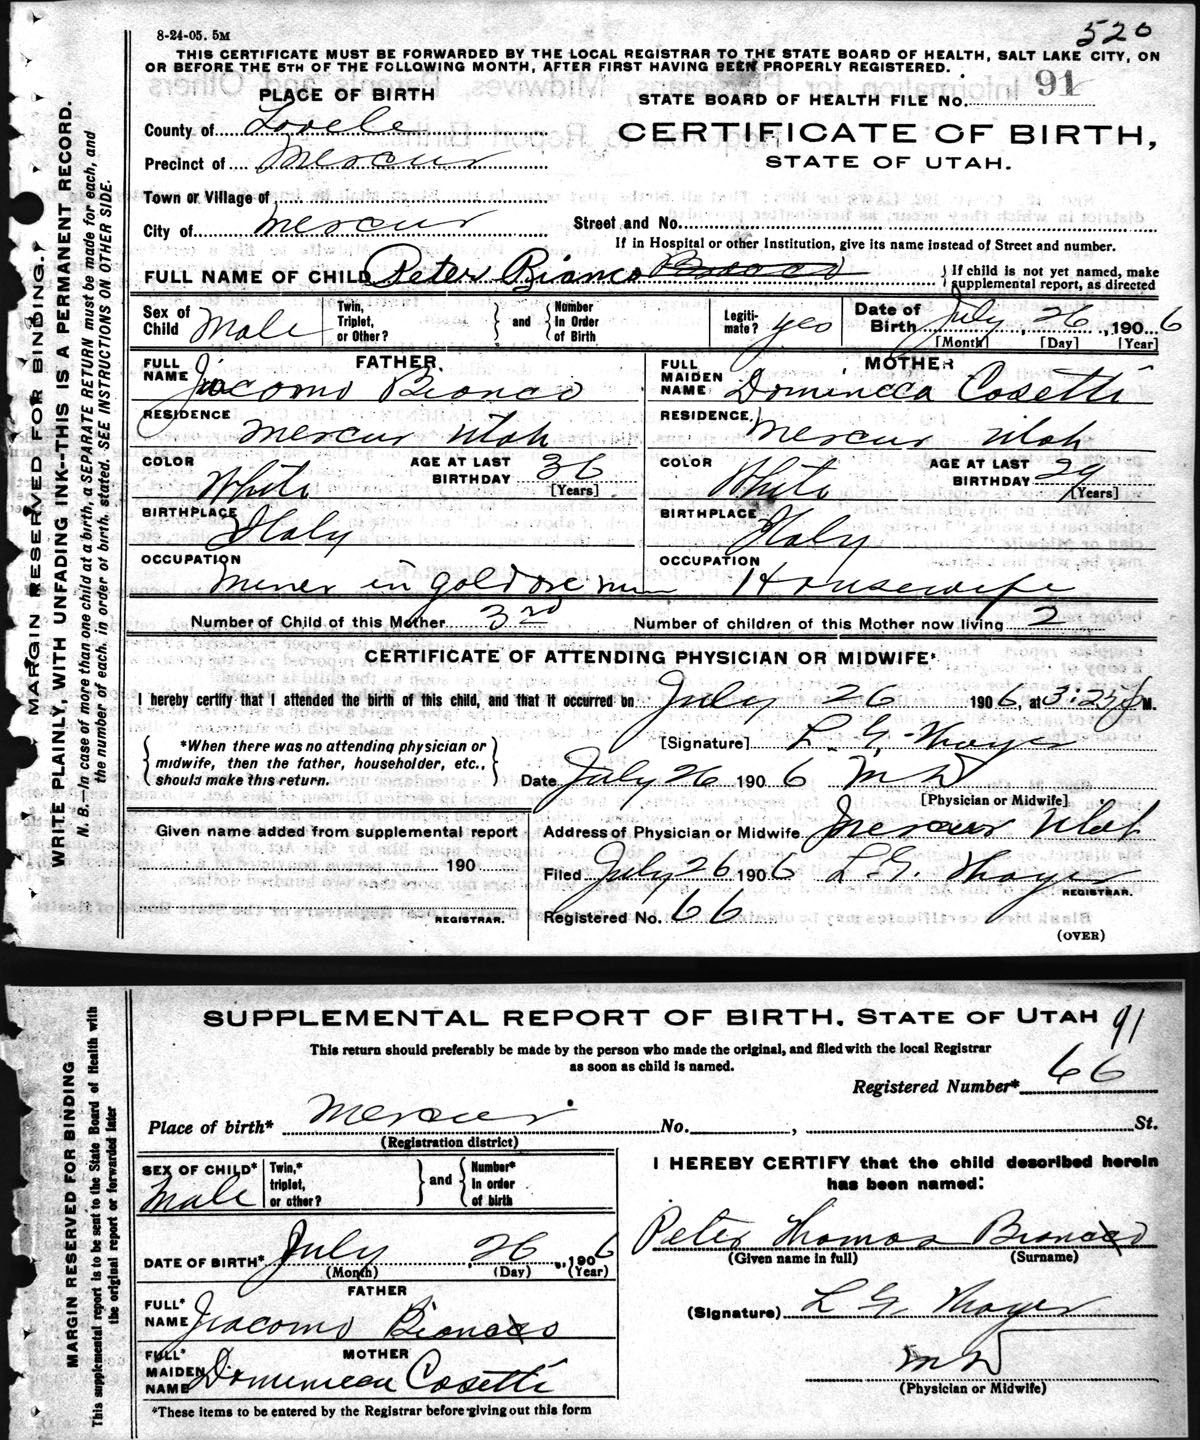 8-24-05. 5M
520
THIS CERTIFICATE MUST BE FORWARDED BY THE LOCAL REGISTRAR TO THE STATE BOARD OF HEALTH, SALT LAKE CITY, ON
OR BEFORE THE 5TH OF THE FOLLOWING MONTH, AFTER FIRST HAVING BEEN PROPERLY REGISTERED.
MARGIN RESERVED FOR BINDING.
WRITE PLAINLY, WITH UNFADING INK--THIS IS A PERMANENT RECORD.
N. B.--In case of more than one child at a birth, a SEPARATE RETURN must be made for each, and
the number of each, in order of birth, stated. SEE INSTRUCTIONS ON OTHER SIDE.
PLACE OF BIRTH
STATE BOARD OF HEALTH FILE No. 91
County of Tooele
CERTIFICATE OF BIRTH,
Precinct of Mercur
STATE OF UTAH.
Town or Village of
City of Mercur
Street and No.
If in Hospital or other Institution, give its name instead of Street and number.
FULL NAME OF CHILD Peter Bianco
If child is not yet named, make
supplemental report, as directed
Sex of Child Male
Twin, Triplet, or Other?
and
Number In Order of Birth
Legitimate? yes
Date of Birth July, 26, 1906
[Month] [Day] [Year]
FATHER.
FULL NAME Jiacomo Bianco
MOTHER
FULL MAIDEN NAME Dominicca Cosetti
RESIDENCE Mercur Utah
RESIDENCE. Mercur Utah
COLOR White
AGE AT LAST BIRTHDAY 36 [Years]
COLOR White
AGE AT LAST BIRTHDAY 29 [Years]
BIRTHPLACE Italy
BIRTHPLACE Italy
OCCUPATION Miner in gold ore
OCCUPATION Housewife
Number of Child of this Mother 3rd
Number of children of this Mother now living 2
CERTIFICATE OF ATTENDING PHYSICIAN OR MIDWIFE*
I hereby certify that I attended the birth of this child, and that it occurred on July 26 1906, at 3:25 P M.
*When there was no attending physician or
midwife, then the father, householder, etc.,
should make this return.
[Signature] L. G. Thayer
Date July 26 1906 M D
[Physician or Midwife]
Given name added from supplemental report
190
REGISTRAR.
Address of Physician or Midwife Mercur Utah
Filed July 26 1906 L. G. Thayer
REGISTRAR.
Registered No. 66
(OVER)
SUPPLEMENTAL REPORT OF BIRTH, STATE OF UTAH 91
This return should preferably be made by the person who made the original, and filed with the local Registrar
as soon as child is named.
Registered Number* 66
MARGIN RESERVED FOR BINDING
This supplemental report is to be sent to the State Board of Health with
the original report or forwarded later
Place of birth* Mercur No. , St.
(Registration district)
SEX OF CHILD* Male
Twin,* triplet, or other?
and
Number* In order of birth
I HEREBY CERTIFY that the child described herein
has been named:
DATE OF BIRTH* July, 26, 1906
(Month) (Day) (Year)
Peter Thomas Bianco
(Given name in full) (Surname)
FATHER
FULL* NAME Jiacomo Bianco
(Signature) L G Thayer
M D
(Physician or Midwife)
MOTHER
FULL* MAIDEN NAME Dominicca Cosetti
*These items to be entered by the Registrar before giving out this form